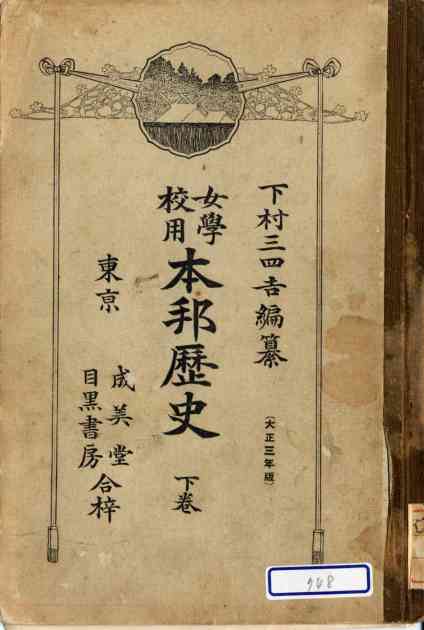 下村三四吉編纂
(大正三年版)
女學校用
本邦歷史
下卷
東京
成美堂
目黒書房
合梓
948